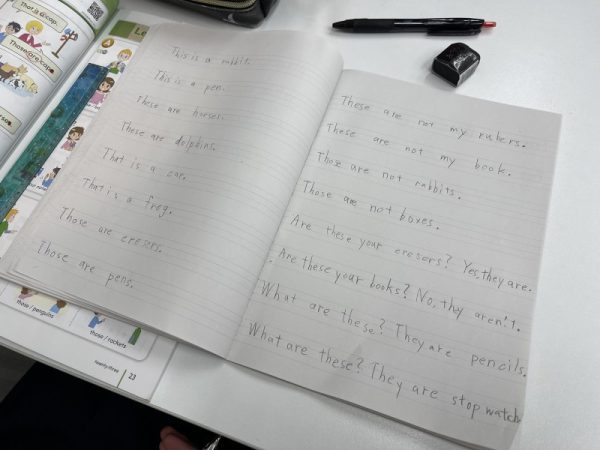 That is a cap.
Those are caps.
Le
those / penguins
those / rockets
twenty-three
23
This is a rabbit.
This is a pen.
These are horses.
These are dolphins.
That is a car.
That is a frog.
Those are eresers.
Those are pens.
These are not my rubers.
These are not my book.
Those are not rabbits.
Those are not boxes.
Are these your eresors? Yes, they are.
Are these your books? No, they aren't.
What are these? They are pencils.
What are these? They are stop watch